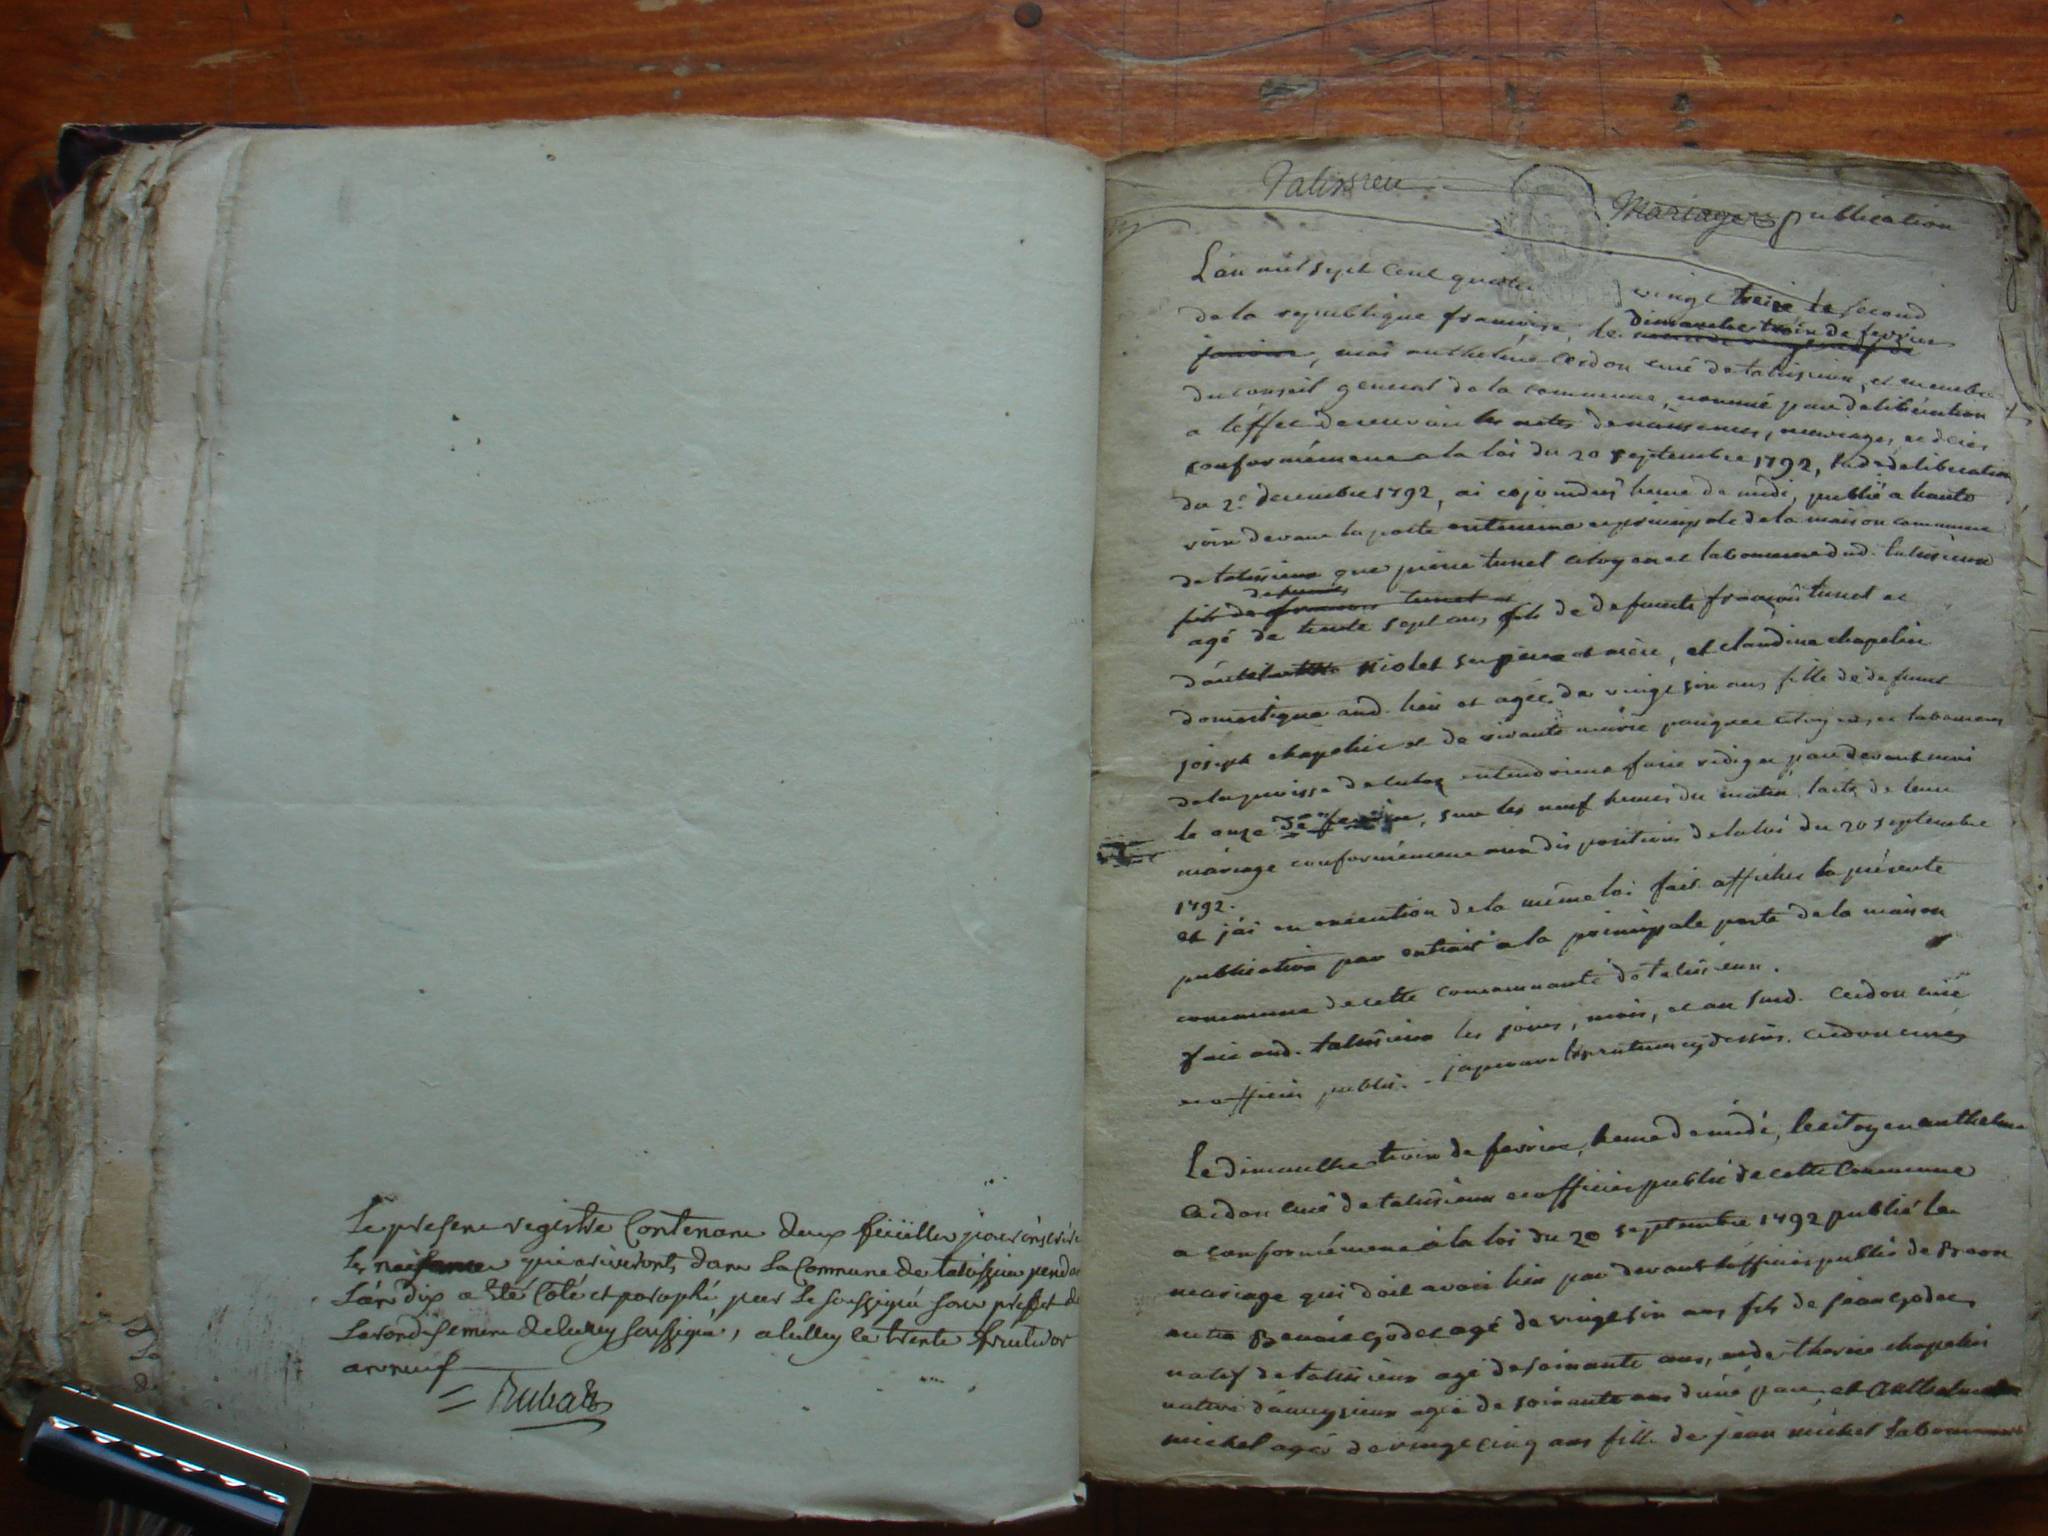 Le present registre Contenant deux feuilles pour inscrire
Les naissances qui ariveront dans La Commune de talissieu pendant
L'an dix a été Coté et paraphé par Le soussigné sous préfet de
Larondisement de belley soussigné, a belley le trente fructidor
an neuf
Talissieu
Mariages publication
L'an mil sept cent quatre vingt treize le second
de la republique francoise, le dimanche trois de fevrier
janvier, moi anthelme Cerdon curé de talissieu, et membre
du conseil general de la commune, nommé par deliberation
a l'effet de recevoir les actes de naissances, mariages, et décès
conformément a la loi du 20 septembre 1792, lad. deliberation
du 2e decembre 1792, ai cejourdhuy heure de midi, publié a haute
voix devant la porte exterieure et principale de la maison commune
de talissieu que pierre tunet citoyen et laboureur dud. talissieu
fils de francois tunet et
agé de trente sept ans, fils de defunts francois tunet et
violet ses pere et mere, et claudine chapelin
domestique aud. lieu et agée de vingt six ans fille de defunt
joseph chapelin et de vivante citoyens et laboureurs
de la paroisse de entendoient faire rediger par devant moi
le onze de fevrier, sur les neuf heures du matin l'acte de leur
mariage conformément aux dispositions de la loi du 20 septembre
1792.
et j'ai en execution de la même loi fait afficher la présente
publication par extrait a la principale porte de la maison
commune de cette communauté de talissieu.
fait aud. talissieu les jour, mois, et an susd. Cerdon curé
et officier public. - japrouve les ratures cy dessus. Cerdon curé
Le dimanche trois de fevrier, heure de midi, le citoyen anthelme
Cerdon curé de talissieu et officier public de cette Commune
a conformément a la loi du 20 septembre 1792 publié le
mariage qui doit avoir lieu par devant l'officier public de Beon
entre Benoit godet agé de vingt six ans fils de jean godet
natif de talissieu agé de soixante ans, et de therese chapelin
native d'ameyzieu agée de soixante ans d'une part, et
michel agée de vingt cinq ans fille de jean michel laboureur